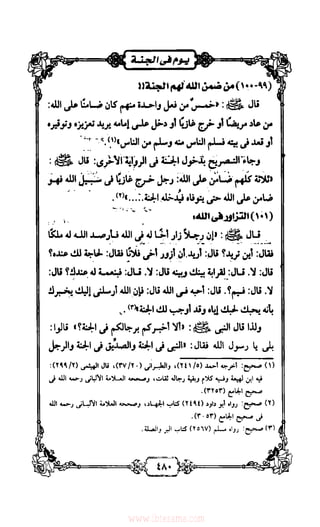 يوم في الجنة
(٩٩-١٠٠) من ضمن الله لهم الجنة!!
قال ﷺ: «خمسٌ من فعل واحدة منهم كان ضامنًا على الله:
من عاد مريضًا أو خرج غازيًا أو دخل على إمامه يريد تعزيزه وتوقيره
أو قعد في بيته فسلم الناس منه وسلم من الناس»(١).
وجاء التصريح بدخول الجنة في الرواية الأخرى: قال ﷺ:
«ثلاثة كلهم ضامن على الله: رجل خرج غازيًا في سبيل الله فهو
ضامن على الله حتى يتوفاه فيُدخله الجنة....»(٢).
(١٠١) التزاور في الله:
قال ﷺ: «إن رجلاً زار أخًا له في الله فأرصد الله له ملكًا
فقال: أين تريد؟ قال: أريد أن أزور أخي فلانًا فقال: لحاجة لك عنده؟
قال: لا. قال: لقرابة بينك وبينه قال: لا. قال: فبنعمة له عندك؟ قال:
لا. قال: فبم؟. قال: أحبه في الله قال: فإن الله أرسلني إليك يخبرك
بأنه يحبك لحبك إياه وقد أوجب لك الجنة»(٣).
ولذا قال النبي ﷺ: «ألا أخبركم برجالكم في الجنة؟» قالوا:
بلى يا رسول الله فقال: «النبي في الجنة والصديق في الجنة والرجل
(١) صحيح: أخرجه أحمد (٢٤١/٥)، والطبراني (٣٧/٢٠)، قال الهيثمي (٢٩٩/٢):
فيه ابن لهيعة وفيه كلام وبقية رجاله ثقات، وصححه العلامة الألباني رحمه الله في
صحيح الجامع (٣٢٥٣).
(٢) صحيح: رواه أبو داود (٢٤٩٤) كتاب الجهاد، وصححه العلامة الألباني رحمه الله
في صحيح الجامع (٣٠٥٣).
(٣) صحيح: رواه مسلم (٢٥٦٧) كتاب البر والصلة.
٤٨٠